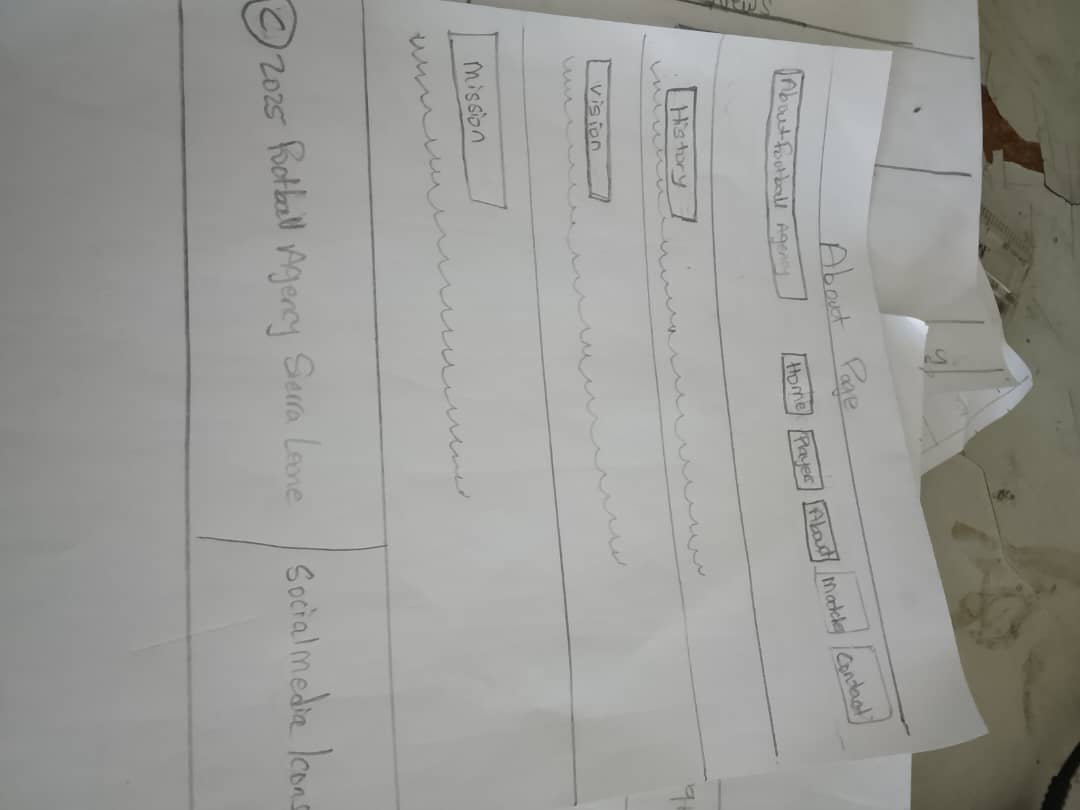 About Page
About football Agency
Home Players About Matche Contact
History
vision
mission
© 2025 Football Agency Sierra Leone
Social media Icons